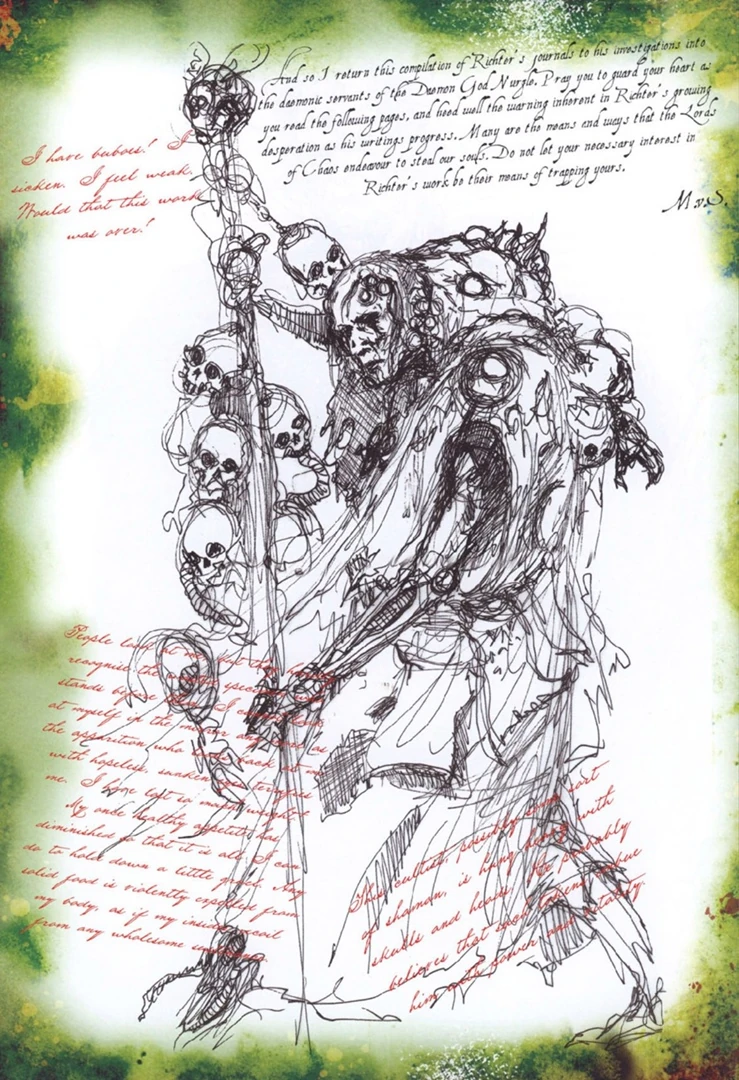 And so I return this compilation of Richter's journals to his investigations into
the daemonic servants of the Daemon God Nurgle. Pray you to guard your heart as
you read the following pages, and heed well the warning inherent in Richter's growing
desperation as his writings progress. Many are the means and ways that the Lords
of Chaos endeavour to steal our souls. Do not let your necessary interest in
Richter's work be their means of trapping yours.
M.v.S.
I have buboes! I
sicken. I feel weak.
Would that this work
was over!
People look at me, but they
recognise the
stands before
at myself in the mirror any
the apparition who back at me
with hopeless, sunken
me. I have lost so much weight!
My once healthy appetite has
diminished so that it is all I can
do to hold down a little gruel. Any
solid food is violently expelled from
my body, as if my insides recoil
from any wholesome
This cultist, possibly some sort
of shaman, is hung about with
skulls and heads. He probably
believes that such imbue
him with power and vitality.